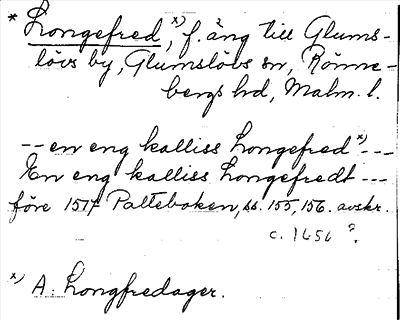 * Longefred, x) f. äng till Glums-
lövs by, Glumslövs sn, Rönne-
bergs hd, Malm. l.
--en eng kalliss Longefred x) ---
En eng kalliss Longefredt ---
före 1514 Palteboken, ss. 155, 156. avskr.
c. 1656 ?.
x) A: Longfredager.